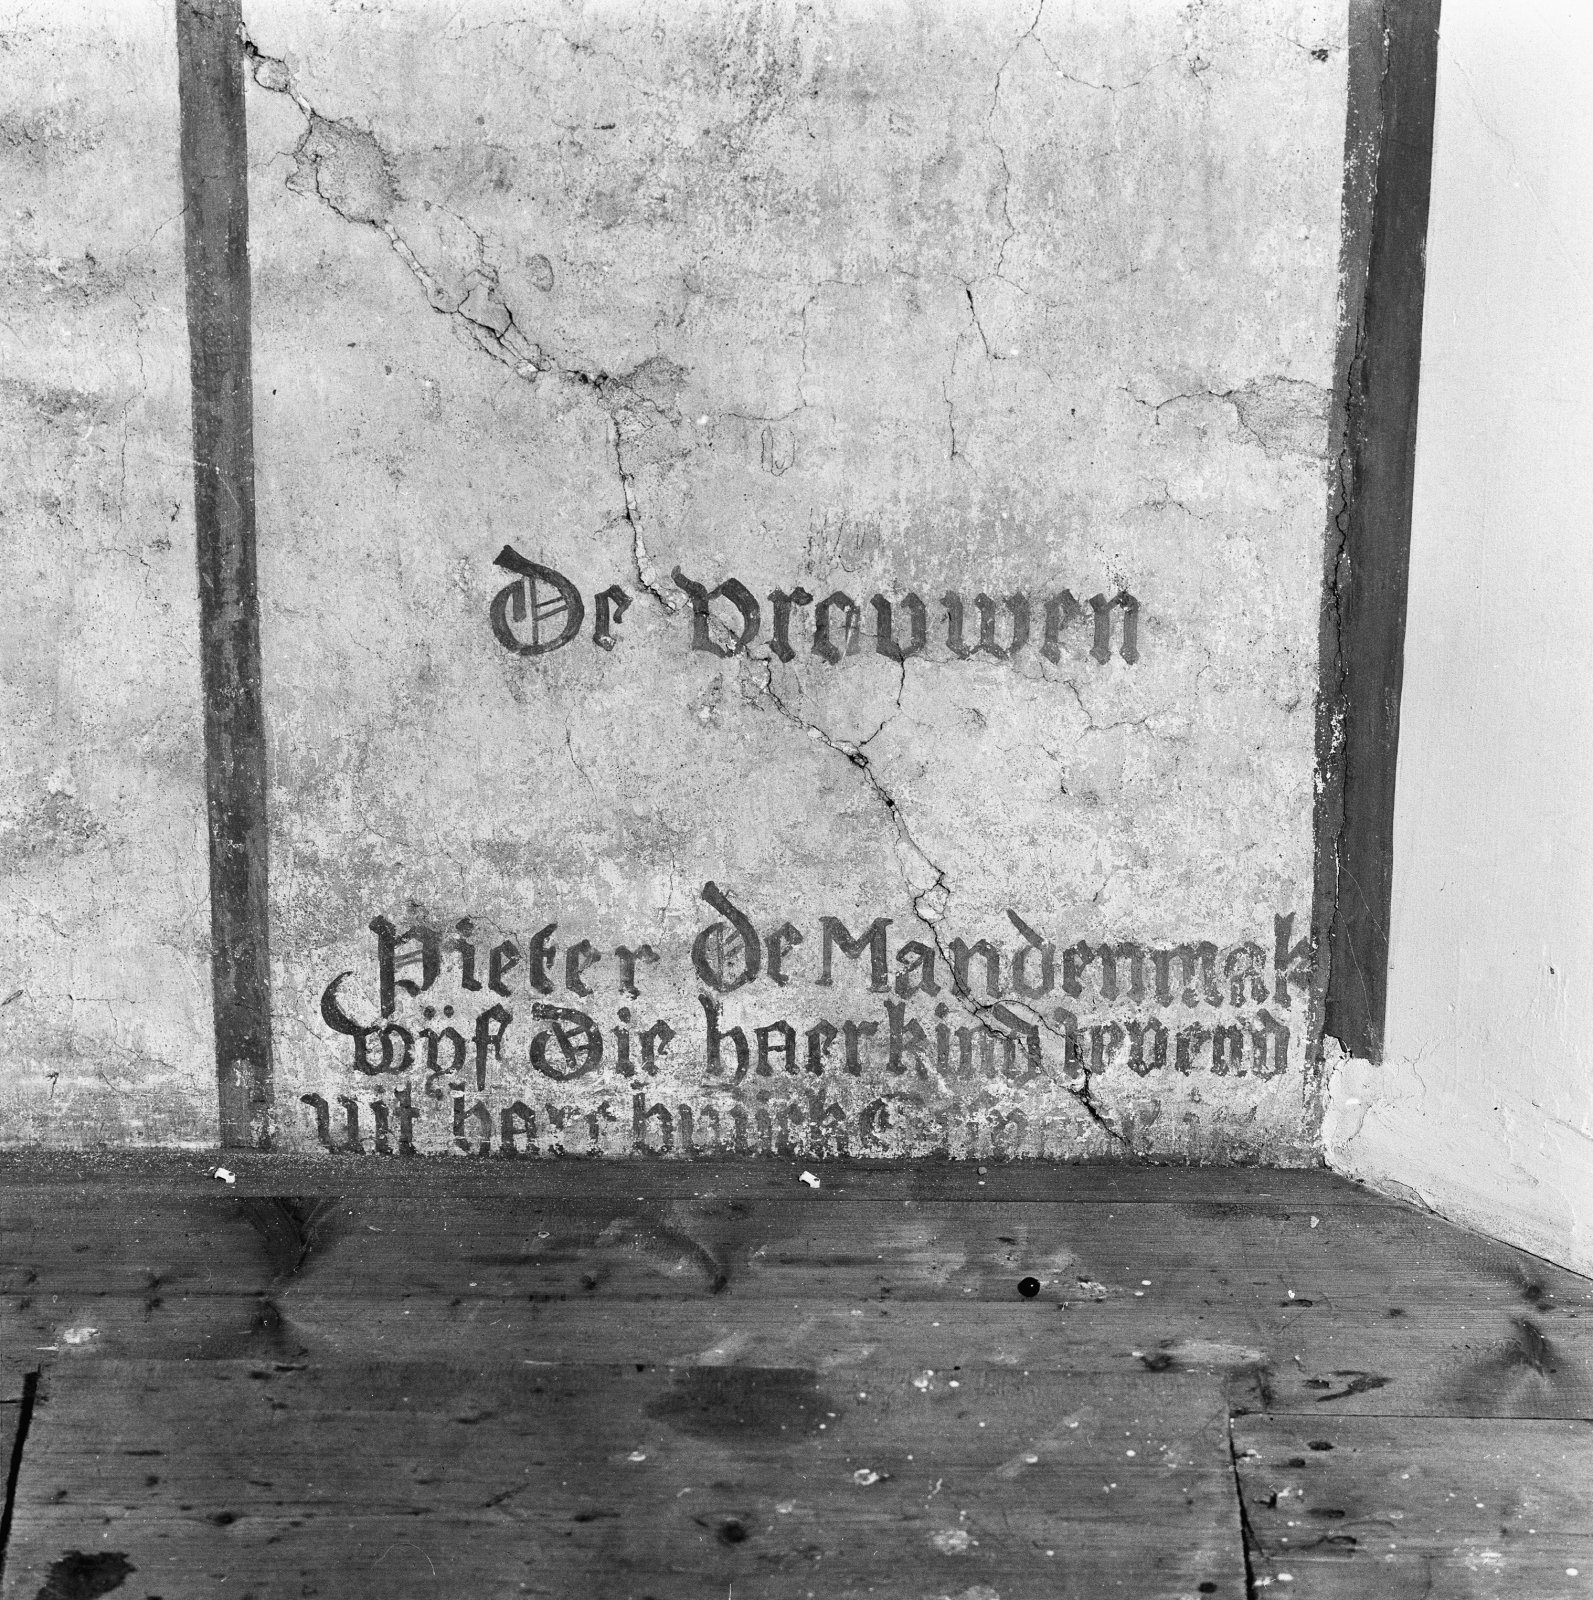 De vrouwen
Pieter de Mandenmak
wÿf die haer kind levend
uit haer buijck